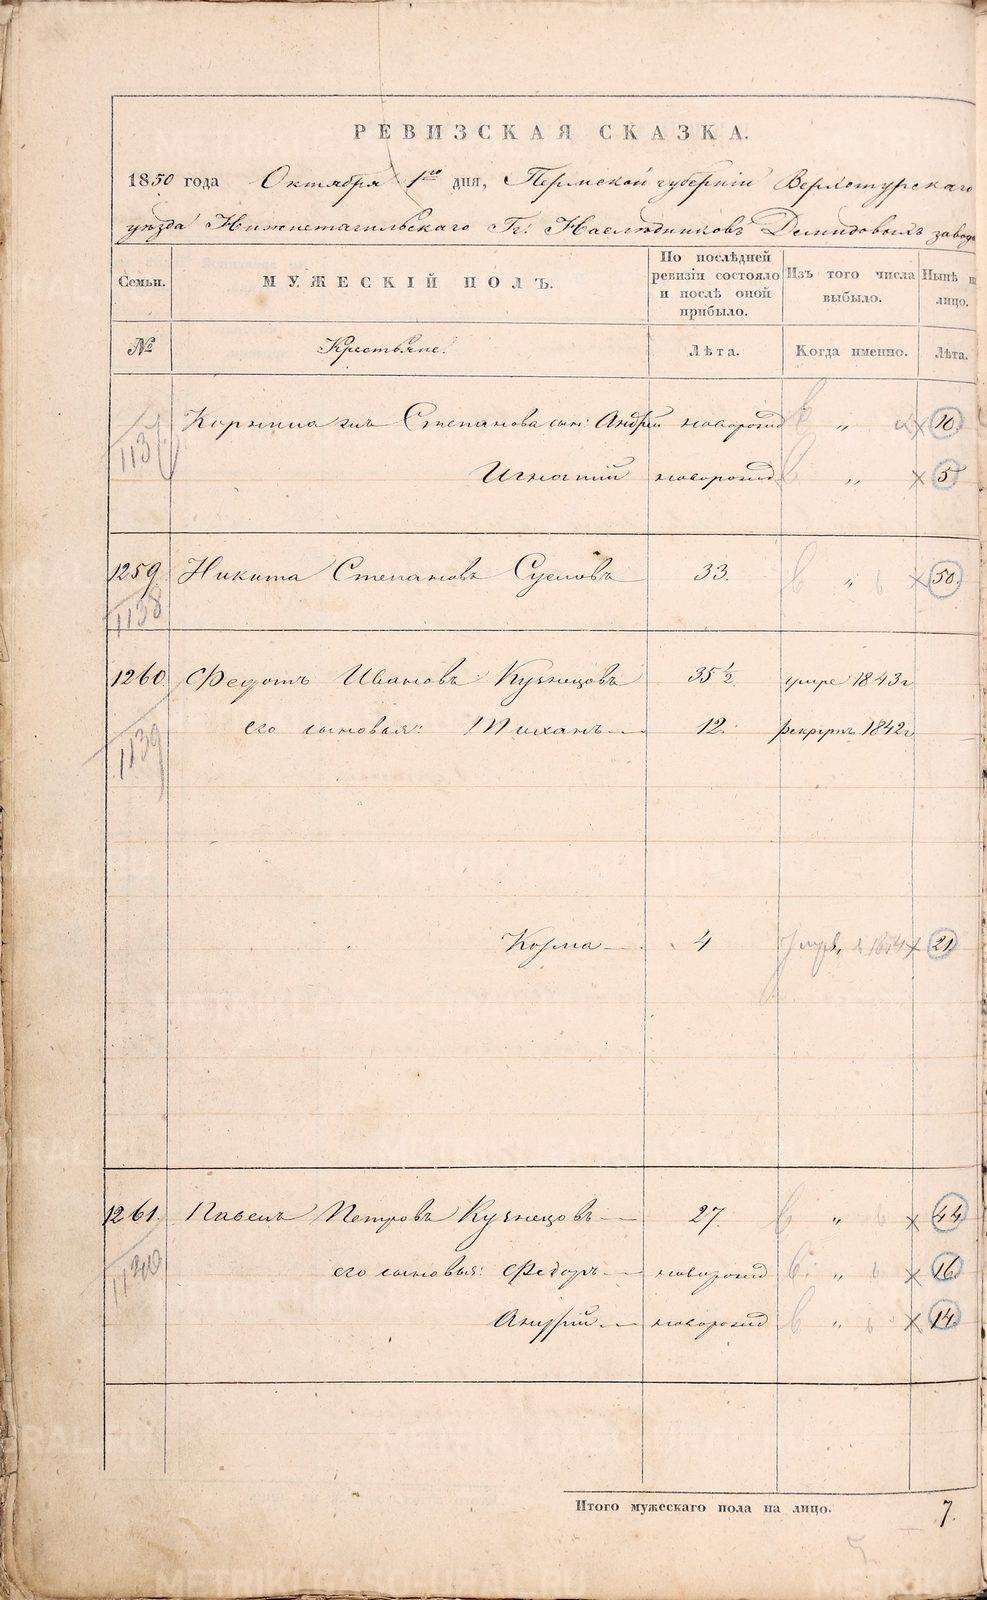 РЕВИЗСКАЯ СКАЗКА.
1850 года Октября 1го дня, Пермской губернiи Верхотурскаго
уезда Нижнетагильскаго Гг: Наследниковъ Демидовыхъ завода
Семьи. МУЖЕСКIЙ ПОЛЪ. По послѣдней ревизiи состояло и послѣ оной прибыло. Изъ того числа выбыло. Нынѣ н лицо.
№ Крестьяне. Лѣта. Когда именно. Лѣта.
1137 Корнила Степанова сын: Андрей новорожд „ 10
Игнатий новорожд „ 5
1259 Никита Степановъ Сусловъ 33. „ 50.
1138
1260 Федотъ Ивановъ Кузнецовъ 35½ умре 1843г
его сыновья: Тиханъ 12. рекрутъ 1842г
1139
Козма 4 21
1261. Павелъ Петровъ Кузнецовъ 27. „ 44
1140 его сыновья: Федоръ новорожд „ 16.
Андрей новорожд „ 14.
Итого мужескаго пола на лицо. 7.
METRIKI.GASO-URAL.RU